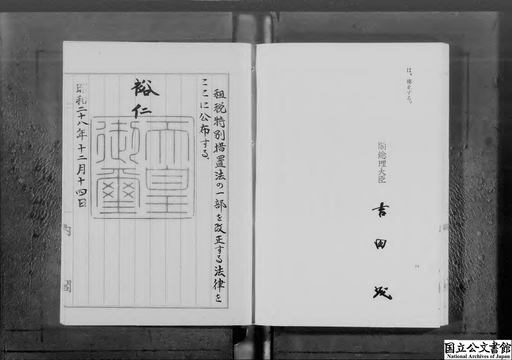 は、廃止する。
内閣総理大臣
吉田茂
租税特別措置法の一部を改正する法律を
ここに公布する。
裕仁
天皇
御璽
昭和二十八年十二月十四日
国立公文書館
National Archives of Japan